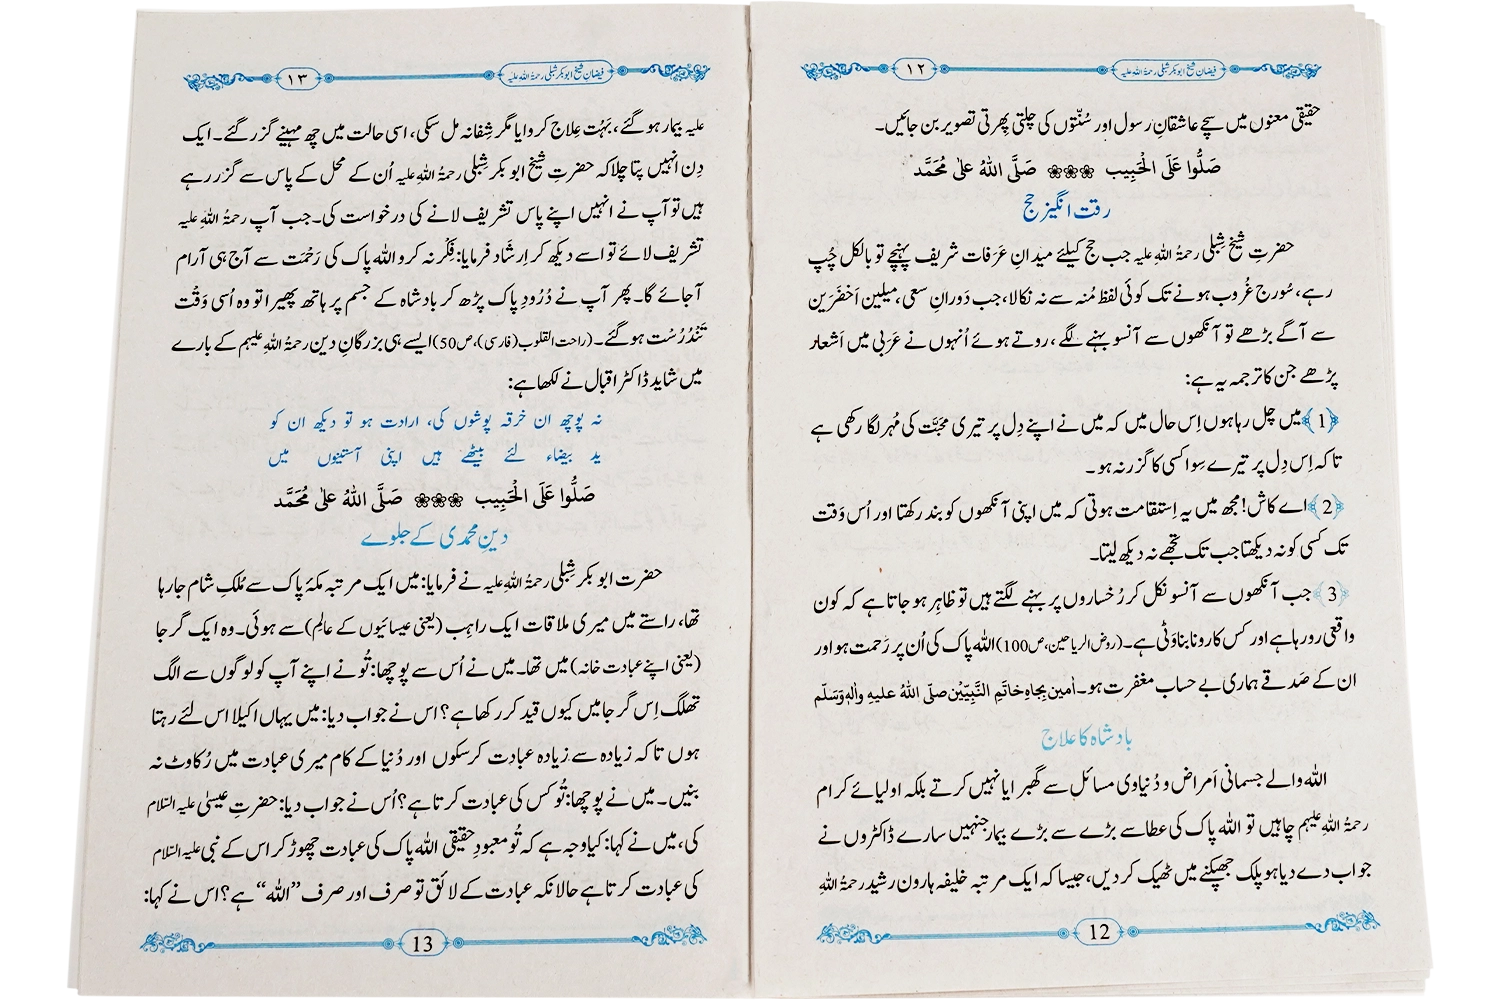 فیضانِ شیخ ابوبکر شبلی رحمۃُ اللہِ علیہ
۱۲
حقیقی معنوں میں سچے عاشقانِ رسول اور سُنّتوں کی چلتی پھرتی تصویر بن جائیں۔
صَلُّوا عَلَی الْحَبِیب ❀❀❀ صَلَّی اللہُ علٰی مُحَمَّد
رقت انگیز حج
حضرتِ شیخ شِبلی رحمۃُ اللہِ علیہ جب حج کیلئے میدانِ عَرَفات شریف پہنچے تو بالکل چُپ
رہے، سُورج غُروب ہونے تک کوئی لفظ مُنہ سے نہ نکالا، جب دَورانِ سعی، میلین اَخضَرَین
سے آگے بڑھے تو آنکھوں سے آنسو بہنے لگے، روتے ہوئے اُنہوں نے عَرَبی میں اَشعار
پڑھے جن کا ترجمہ یہ ہے:
﴿1﴾ میں چل رہا ہوں اِس حال میں کہ میں نے اپنے دِل پر تیری محبَّت کی مُہر لگا رکھی ہے
تا کہ اِس دِل پر تیرے سِوا کسی کا گزر نہ ہو۔
﴿2﴾ اے کاش! مجھ میں یہ اِستقامت ہوتی کہ میں اپنی آنکھوں کو بند رکھتا اور اُس وَقت
تک کسی کو نہ دیکھتا جب تک تجھے نہ دیکھ لیتا۔
﴿3﴾ جب آنکھوں سے آنسو نکل کر رُخساروں پر بہنے لگتے ہیں تو ظاہر ہو جاتا ہے کہ کون
واقعی رو رہا ہے اور کس کا رونا بناوَٹی ہے۔ (روض الریاحین، ص100) اللہ پاک کی اُن پر رَحمت ہو اور
ان کے صَدقے ہماری بے حساب مغفرت ہو۔ اٰمین بِجاہِ خاتَمِ النَّبِیّٖن صلَّی اللہُ علیهِ واٰلهٖ وَسَلَّم
بادشاہ کا علاج
اللہ والے جسمانی اَمراض و دُنیاوی مسائل سے گھبرایا نہیں کرتے بلکہ اولیائے کرام
رحمۃُ اللہِ علیہم چاہیں تو اللہ پاک کی عطا سے بڑے سے بڑے بیمار جنہیں سارے ڈاکٹروں نے
جواب دے دیا ہو پلک جھپکنے میں ٹھیک کر دیں، جیسا کہ ایک مرتبہ خلیفہ ہارون رشید رحمۃُ اللہِ
12
فیضانِ شیخ ابوبکر شبلی رحمۃُ اللہِ علیہ
۱۳
علیہ بیمار ہو گئے، بَہُت عِلاج کروایا مگر شِفا نہ مل سکی، اسی حالت میں چھ مہینے گزر گئے۔ ایک
دِن انہیں پتا چلا کہ حضرتِ شیخ ابوبکر شِبلی رحمۃُ اللہِ علیہ اُن کے محل کے پاس سے گزر رہے
ہیں تو آپ نے انہیں اپنے پاس تشریف لانے کی درخواست کی۔ جب آپ رحمۃُ اللہِ علیہ
تشریف لائے تو اسے دیکھ کر اِرشاد فرمایا: فِکْر نہ کرو اللہ پاک کی رَحْمَت سے آج ہی آرام
آ جائے گا۔ پھر آپ نے دُرُودِ پاک پڑھ کر بادشاہ کے جسم پر ہاتھ پھیرا تو وہ اُسی وَقْت
تَنْدُرُسْت ہو گئے۔ (راحت القلوب (فارسی)، ص50) ایسے ہی بزرگانِ دین رحمۃُ اللہِ علیہم کے بارے
میں شاید ڈاکٹر اقبال نے لکھا ہے:
نہ پوچھ ان خرقہ پوشوں کی، ارادت ہو تو دیکھ ان کو
یدِ بیضاء لئے بیٹھے ہیں اپنی آستینوں میں
صَلُّوا عَلَی الْحَبِیب ❀❀❀ صَلَّی اللہُ علٰی مُحَمَّد
دینِ محمدی کے جلوے
حضرت ابوبکر شِبلی رحمۃُ اللہِ علیہ نے فرمایا: میں ایک مرتبہ مکۂ پاک سے مُلکِ شام جا رہا
تھا، راستے میں میری ملاقات ایک راہِب (یعنی عیسائیوں کے عالِم) سے ہوئی۔ وہ ایک گرجا
(یعنی اپنے عبادت خانہ) میں تھا۔ میں نے اُس سے پوچھا: تُو نے اپنے آپ کو لوگوں سے الگ
تھلگ اِس گرجا میں کیوں قید کر رکھا ہے؟ اس نے جواب دیا: میں یہاں اکیلا اس لئے رہتا
ہوں تا کہ زیادہ سے زیادہ عبادت کرسکوں اور دُنیا کے کام میری عبادت میں رُکاوٹ نہ
بنیں۔ میں نے پوچھا: تُو کس کی عبادت کرتا ہے؟ اُس نے جواب دیا: حضرتِ عیسیٰ علیہ السّلام
کی، میں نے کہا: کیا وجہ ہے کہ تُو معبودِ حقیقی اللہ پاک کی عبادت چھوڑ کر اس کے نبی علیہ السّلام
کی عبادت کرتا ہے حالانکہ عبادت کے لائق تو صرف اور صرف ”اللہ“ ہے؟ اس نے کہا:
13